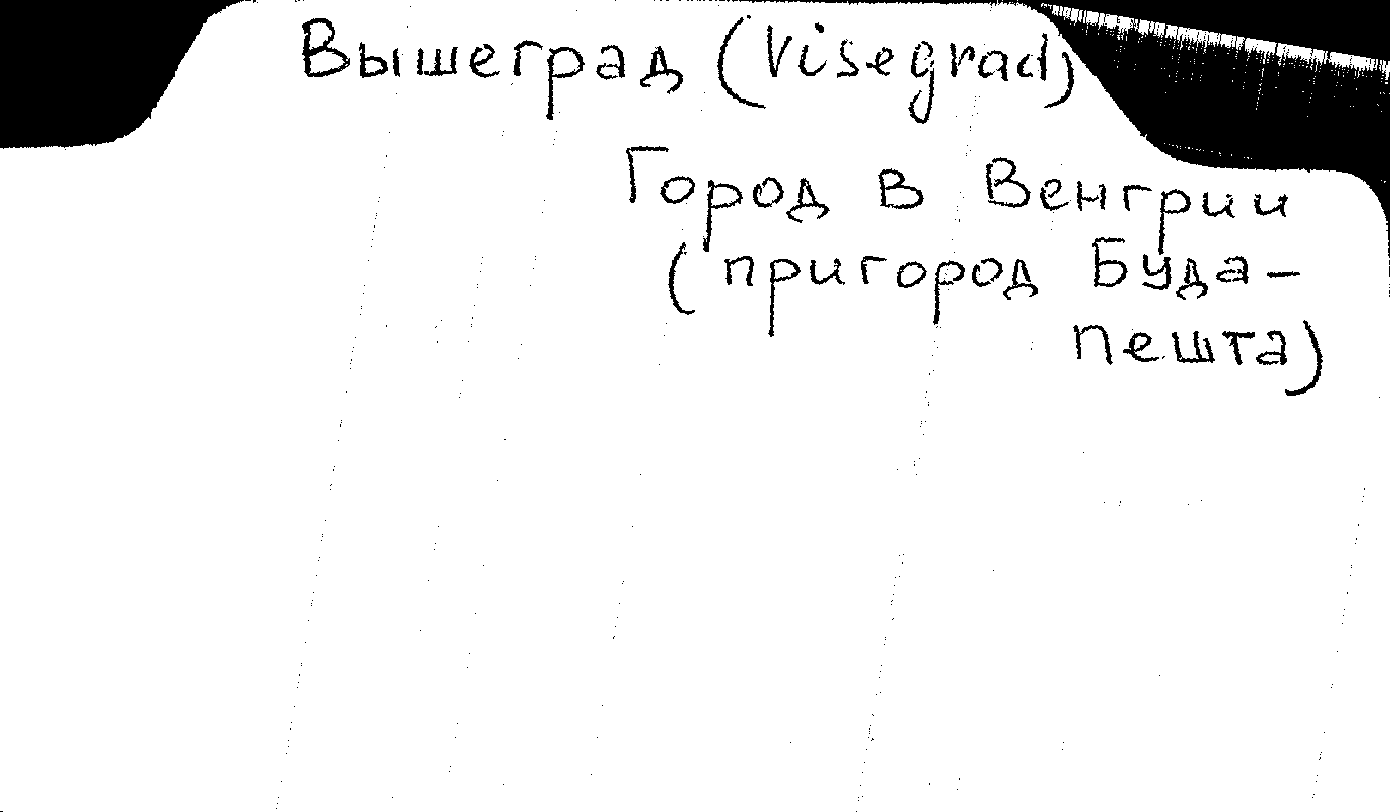 Вышеград (Visegrad)
Город в Венгрии
(пригород Буда-
пешта)